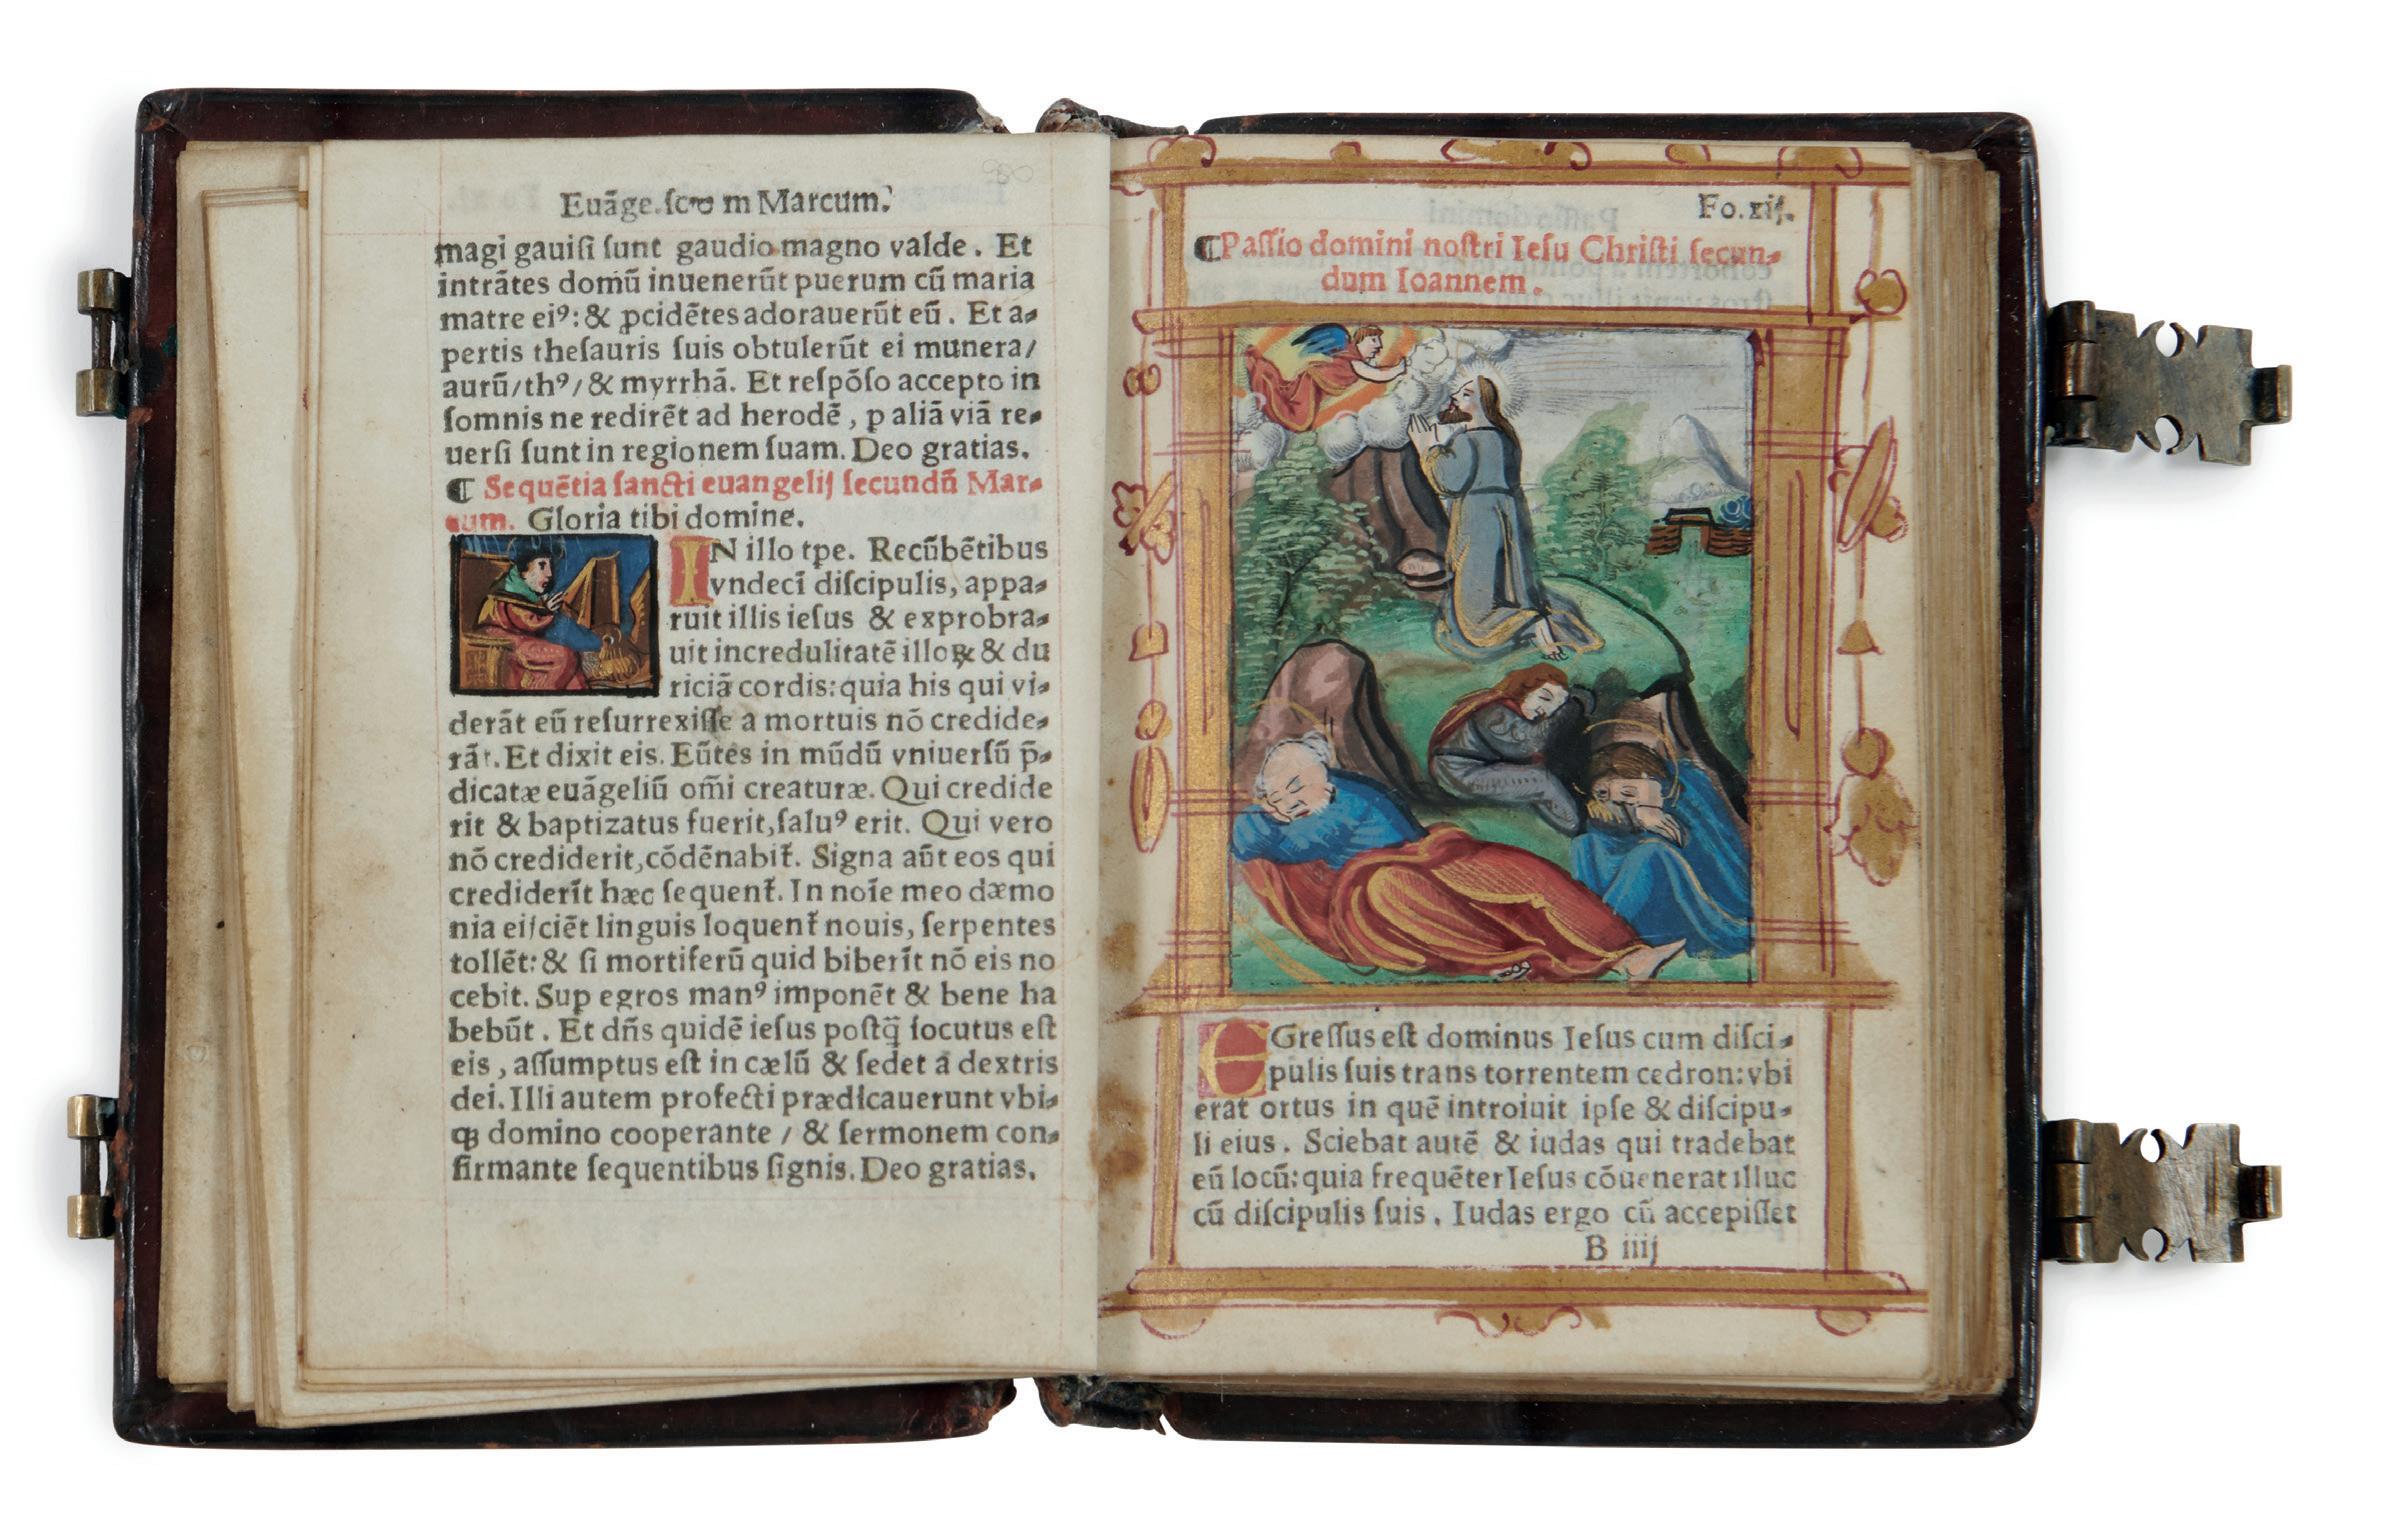 Euãge. ſcꝺ̄m Marcum.
magi gauiſi ſunt gaudio magno valde. Et
intrãtes domũ inuenerũt puerum cũ maria
matre eiꝰ: & ꝓcidẽtes adorauerũt eũ. Et a-
pertis theſauris ſuis obtulerũt ei munera/
aurũ/thꝰ/& myrrhã. Et reſpõſo accepto in
ſomnis ne redirẽt ad herodẽ, p aliã viã re-
uerſi ſunt in regionem ſuam. Deo gratias.
¶ Sequẽtia ſancti euangelij ſecundũ Mar-
cum. Gloria tibi domine.
IN illo tpe. Recũbẽtibus
vndecĩ diſcipulis, appa-
ruit illis ieſus & exprobra-
uit incredulitatẽ illoꝝ & du
riciã cordis: quia his qui vi-
derãt eũ reſurrexiſſe a mortuis nõ credide-
rãt. Et dixit eis. Eũtes in mũdũ vniuerſũ p̃-
dicatæ euãgeliũ om̃i creaturæ. Qui credide
rit & baptizatus fuerit, ſaluꝰ erit. Qui vero
nõ crediderit, cõdẽnabit̃. Signa aũt eos qui
crediderĩt hæc ſequent̃. In noĩe meo dæmo
nia eijciẽt linguis loquent̃ nouis, ſerpentes
tollẽt: & ſi mortiferũ quid biberĩt nõ eis no
cebit. Sup egros manꝰ imponẽt & bene ha
bebũt. Et dñs quidẽ ieſus poſtq̃ locutus eſt
eis, aſſumptus eſt in cælũ & ſedet a dextris
dei. Illi autem profecti prædicauerunt vbi-
qꝫ domino cooperante / & ſermonem con-
firmante ſequentibus ſignis. Deo gratias.
Fo. xij.
¶Paſſio domini noſtri Ieſu Chriſti ſecun-
dum Ioannem.
EGreſſus eſt dominus Ieſus cum diſci-
pulis ſuis trans torrentem cedron: vbi
erat ortus in quẽ introiuit ipſe & diſcipu-
li eius. Sciebat autẽ & iudas qui tradebat
eũ locũ: quia frequẽter Ieſus cõuenerat illuc
cũ diſcipulis ſuis. Iudas ergo cũ accepiſſet
B iiij